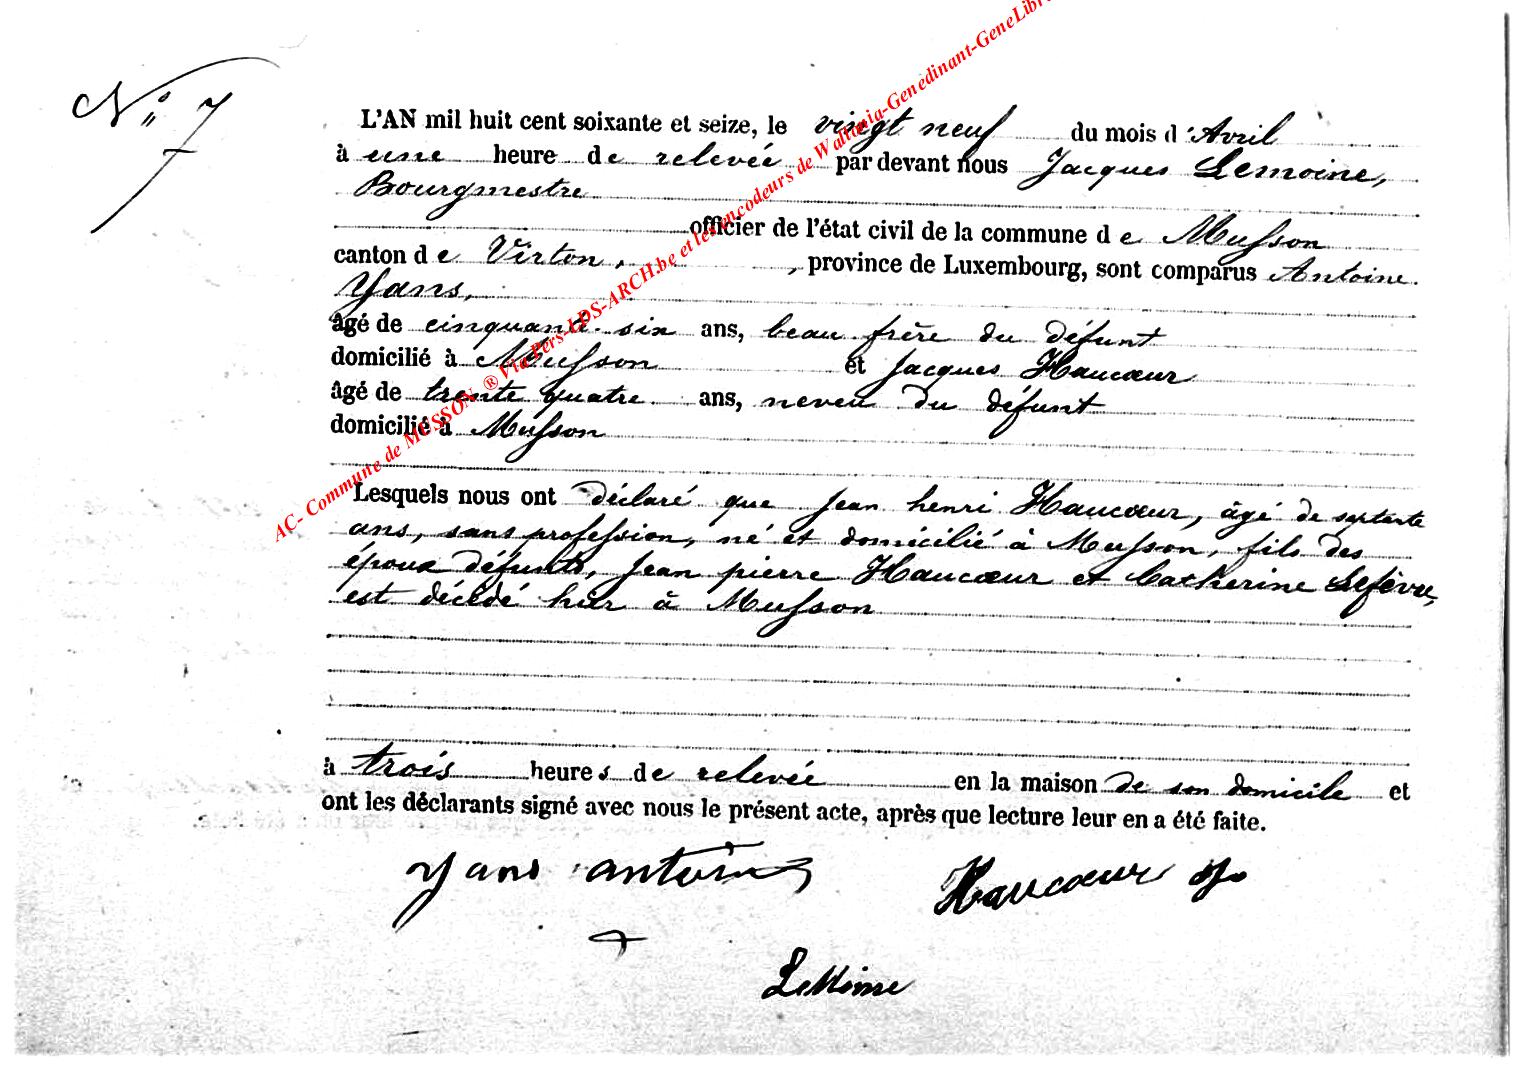 N° 7
L'AN mil huit cent soixante et seize, le vingt neuf du mois d'Avril
à une heure de relevée par devant nous Jacques Lemoine,
Bourgmestre
officier de l'état civil de la commune de Musson
canton de Virton, , province de Luxembourg, sont comparus Antoine
Yans,
âgé de cinquante six ans, beau frère du défunt
domicilié à Musson et Jacques Haucœur
âgé de trente quatre ans, neveu du défunt
domicilié à Musson
Lesquels nous ont déclaré que Jean henri Haucœur, âgé de septante
ans, sans profession, né et domicilié à Musson, fils des
époux défunts, Jean pierre Haucœur et Catherine Lefèvre,
est décédé hier à Musson
à trois heures de relevée en la maison de son domicile et
ont les déclarants signé avec nous le présent acte, après que lecture leur en a été faite.
yans antoine Haucœur
Lemoine
AC- Commune de MUSSON ® Via Pers-LDS-ARCH.be et les encodeurs de Waltania-Genedinant-GeneLibr